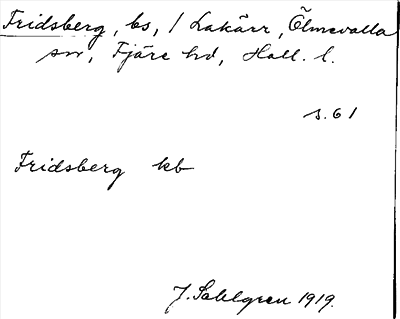 Fridsberg, bs, / Lakärr, Ölmevalla
sn, Fjäre hd, Hall. l.
s. 61
Fridsberg kb
J. Sahlgren 1919.